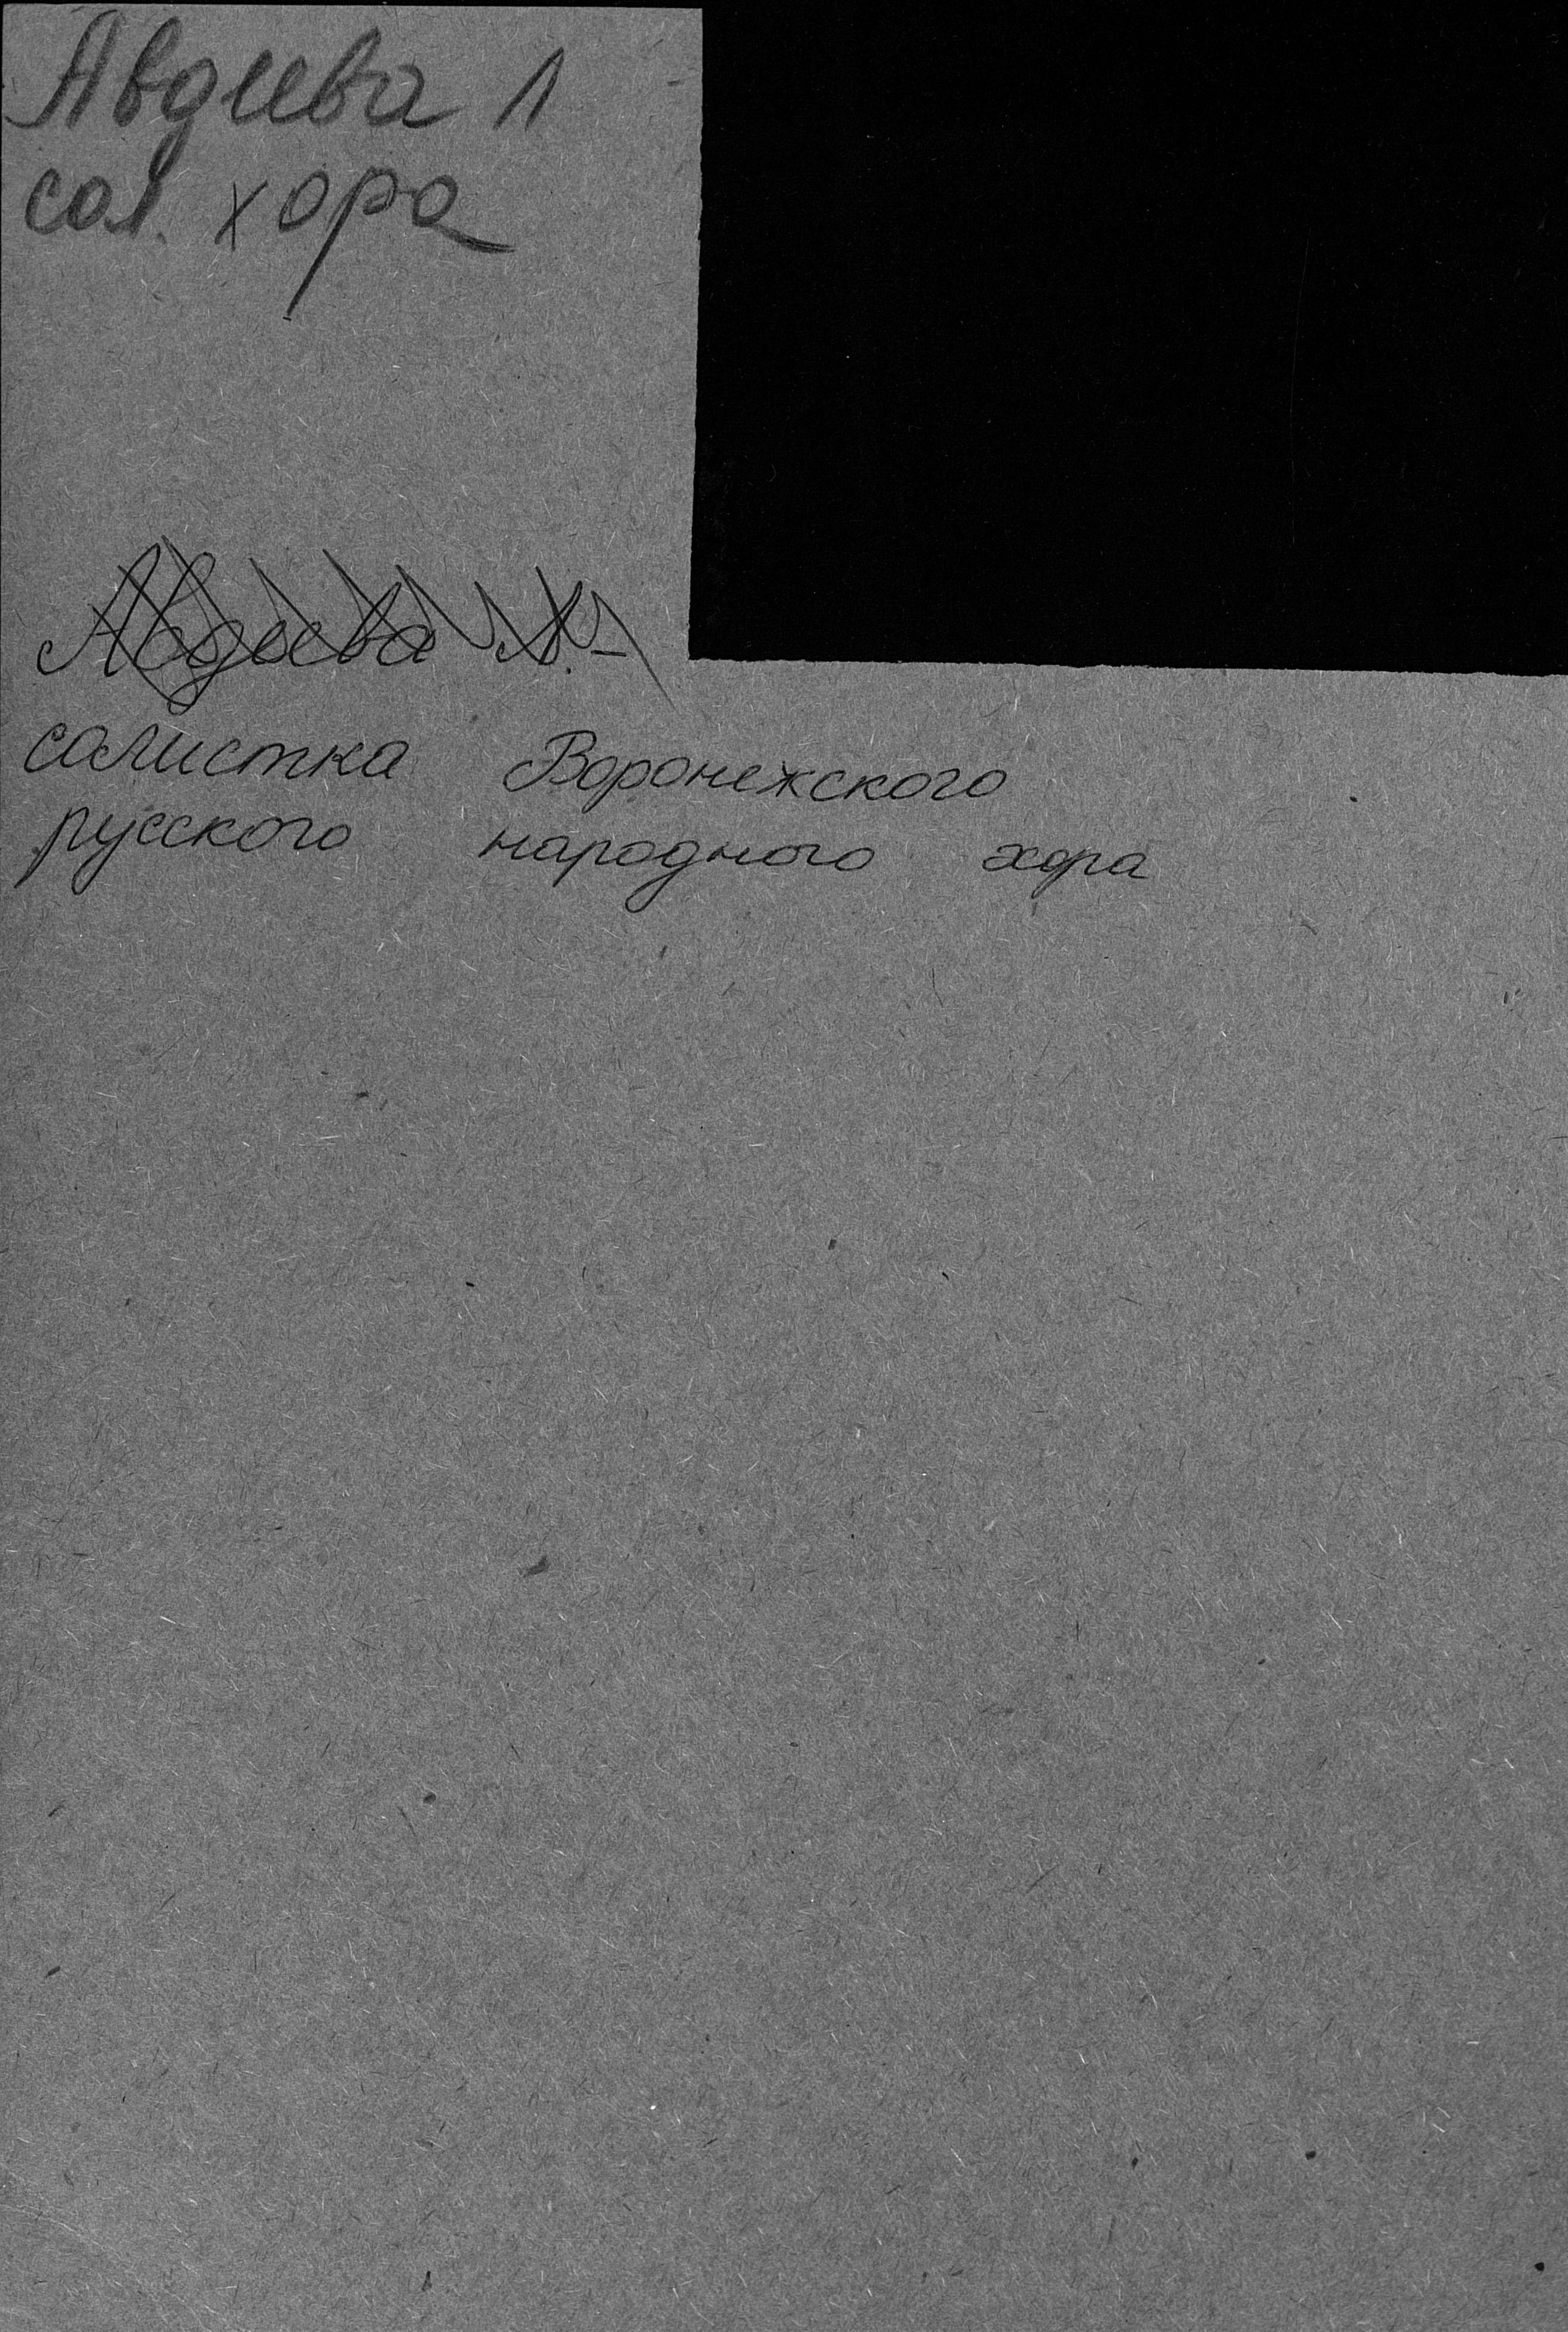 Авдеева Л
сол. хора
Авдеева Л. –
солистка Воронежского
русского народного хора